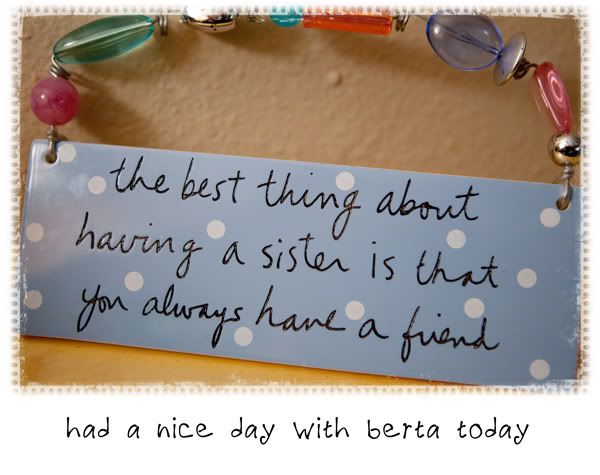 the best thing about
having a sister is that
you always have a friend
had a nice day with berta today